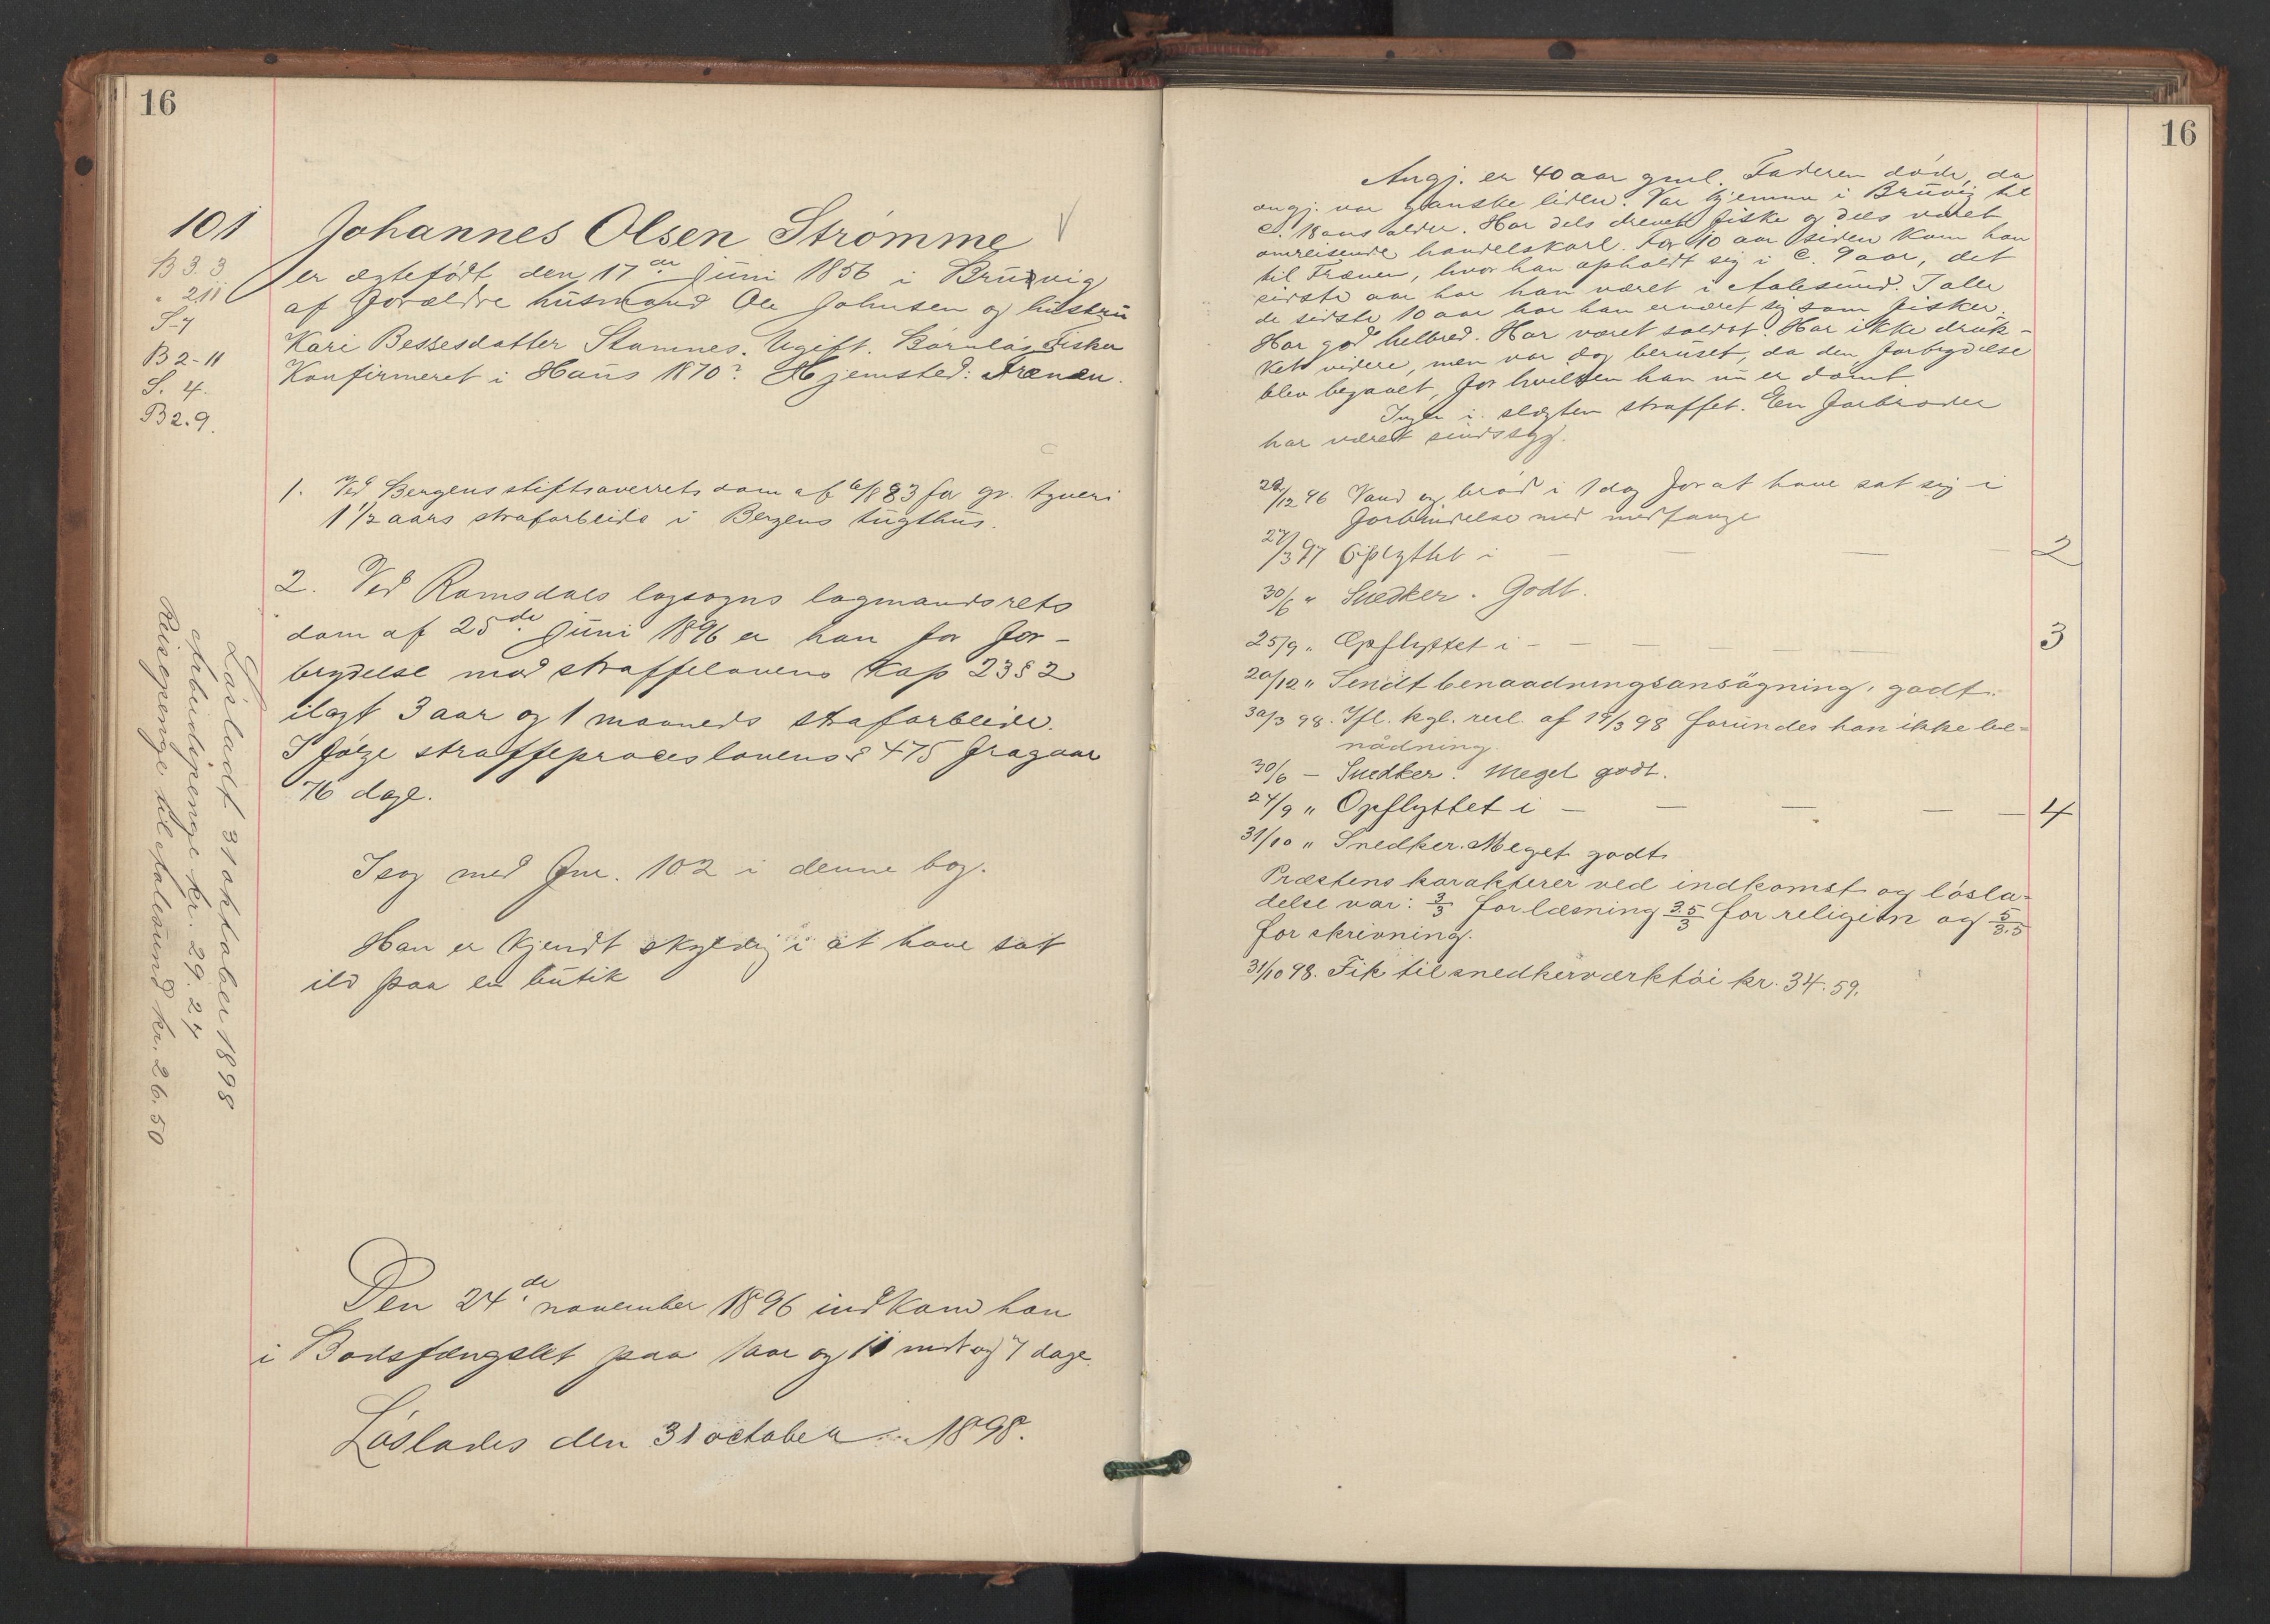 16
101
B 3. 3
" 211
S-7
B 2-11
S. 4.
B 2. 9.
Johannes Olsen Strømme
er ægtefødt den 17de Juni 1856 i Bruvig
af forældre husmand Ole Johnsen og hustru
Kari Bessesdatter Stamnes. Ugift. Barnløs. Fisker
Konfirmeret i Haus 1870? Hjemsted: Frænen.
1. Ved Bergens stiftsoverrets dom af 6/8 83 for gr. tyveri
1 1/2 aars strafarbeide i Bergens tugthus.
2. Ved Romsdals lagsogns lagmandsrets
dom af 25de Juni 1896 er han for for-
brydelse mod straffelovens Kap 23 § 2
ilagt 3 aar og 1 maaneds strafarbeide.
I følge straffeproceslovens § 475 fragaar
76 dage.
I sag med Fnr. 102 i denne bog.
Han er kjendt skyldig i at have sat
ild paa en butik
Løsladt 31 oktober 1898
Arbeidspenge kr. 29.24
Reisepenge til Aalesund kr. 26.50
Den 24de november 1896 indkom han
i Bodsfængslet paa 1 aar og 11 mdr og 7 dage.
Løslades den 31 october 1898.
16
Angj. er 40 aar gml. Faderen døde, da
angj. var ganske liden. Var hjemme i Bruvig til
c. 18 aars alder. Har dels drevet fiske og dels været
omreisende handelskarl. For 10 aar siden kom han
til Frænen, hvor han opholdt sig i c. 9 aar, det
sidste aar har han været i Aalesund. I alle
de sidste 10 aar har han ernæret sig som fisker.
Har god helbred. Har været soldat. Har ikke druk-
ket videre, men var dog beruset, da den forbrydelse
blev begaaet, for hvilken han nu er dømt.
Ingen i slægten straffet. En farbroder
har været sindssyg.
28/12 96 Vand og brød i 1 dag for at have sat sig i
forbindelse med medfange
27/3 97 Opflyttet i — — — — 2
30/6 " Snedker. Godt.
25/9 " Opflyttet i - — — — — — 3
20/12 " Sendt benaadningsansøgning, godt.
30/3 98. Ifl. kgl. resl. af 19/3 98 forundes han ikke be-
nådning.
30/6 — Snedker. Meget godt.
24/9 " Opflyttet i — — — — — 4
31/10 " Snedker. Meget godt.
Præstens karakterer ved indkomst og løsla-
delse var: 3/3 for læsning 3.5/3 for religion og 5/3.5
for skrivning.
31/10 98. Fik til snedkerværktøi kr. 34.59.